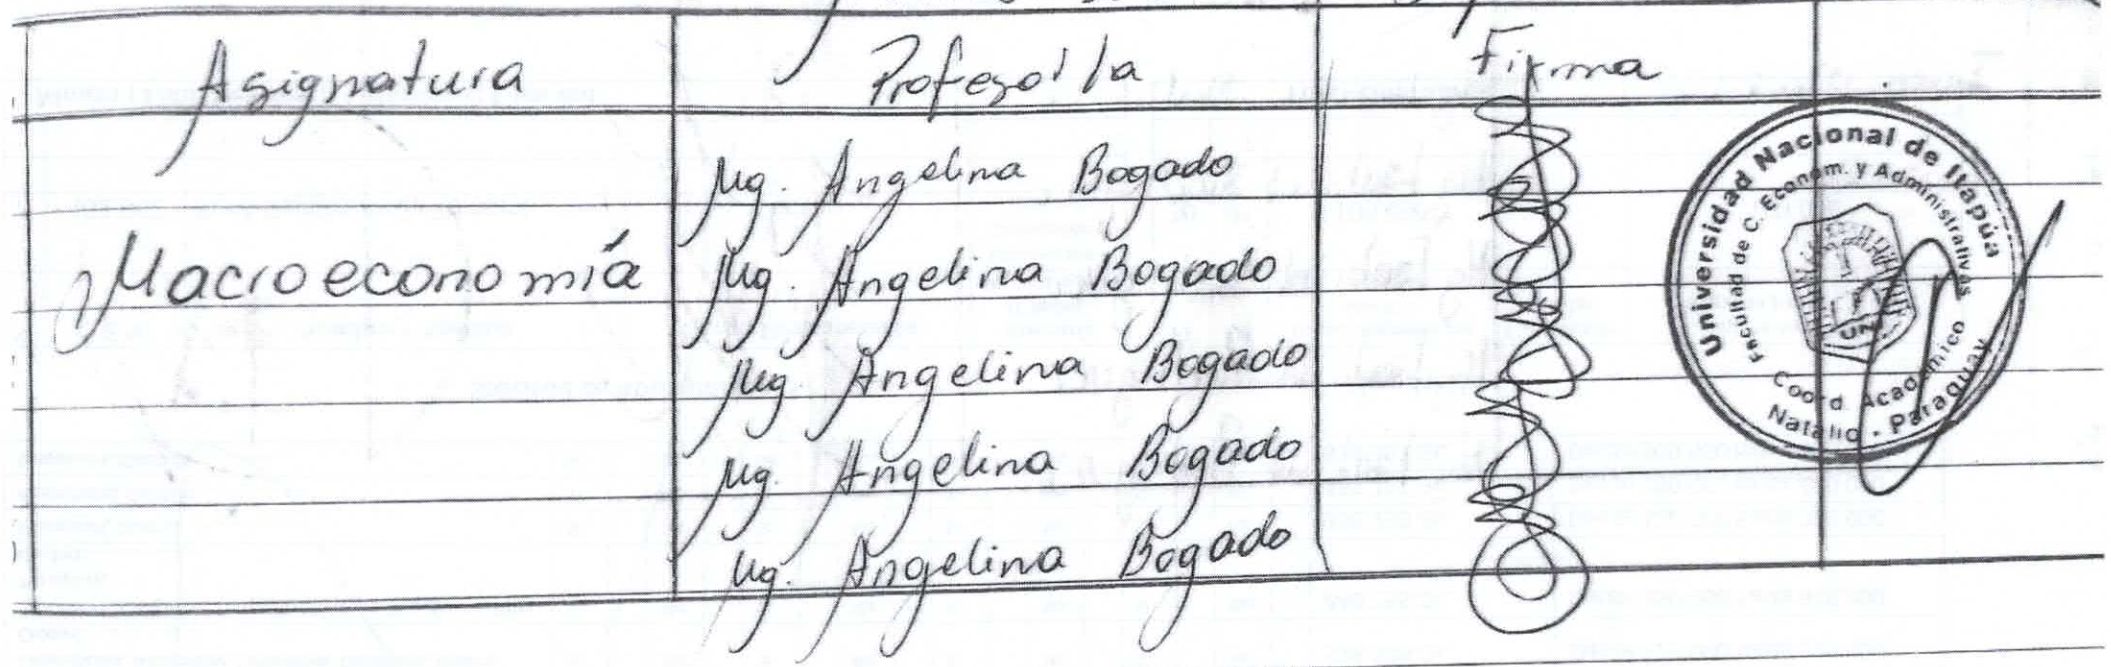 Asignatura Profesor/a Firma
Mg. Angelina Bogado
Macroeconomía Mg. Angelina Bogado
Mg Angelina Bogado
Mg. Angelina Bogado
Mg. Angelina Bogado
Universidad Nacional de Itapúa
Facultad de C. Econom. y Administrativas
Coord. Académico
Natalio - Paraguay